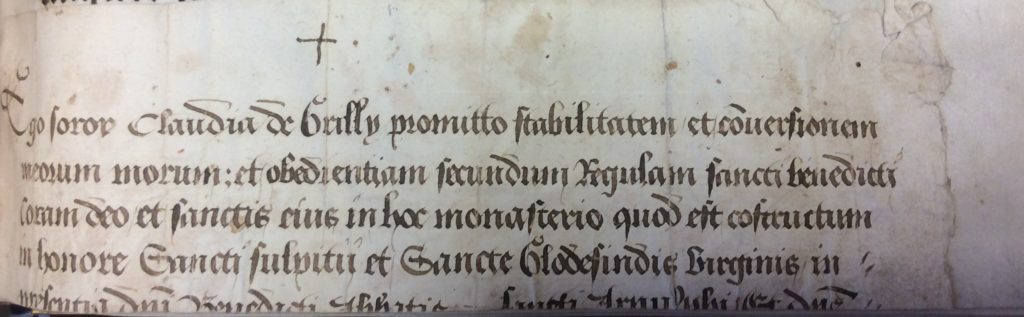 Ego soror Claudia de Grilly promitto stabilitatem et cōversionem
meorum morum: et obedientiam secundum Regulam sancti benedicti
Coram deo et sanctis eius in hoc monasterio quod est cōstructum
in honore Sancti sulpitii et Sancte Glodesindis Virginis in
presentia dnī Benedicti Abbatis sancti Arnulphi Et dnē